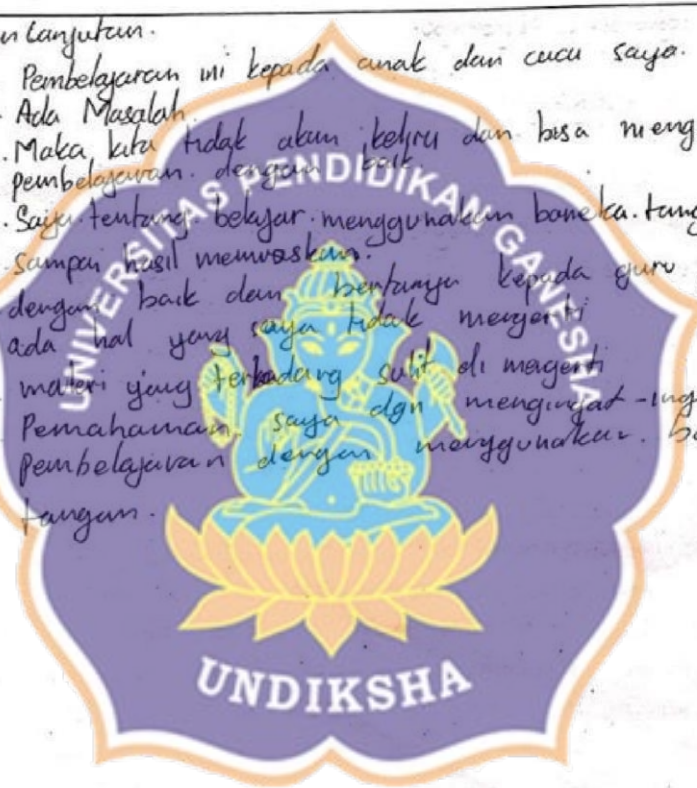 n lanjutan.
Pembelajaran ini kepada anak dan cucu saya.
Ada Masalah.
Maka kita tidak akan keliru dan bisa meng
pembelajaran dengan baik.
Saya tentang belajar menggunakan boneka tang
sampai hasil memuaskan.
dengan baik dan bertanya kepada guru
ada hal yang saya tidak mengerti
materi yang terkadang sulit di mengerti
Pemahaman saya dgn mengingat-ing
Pembelajaran dengan menggunakan bo
tangan.
UNIVERSITAS PENDIDIKAN GANESHA
UNDIKSHA